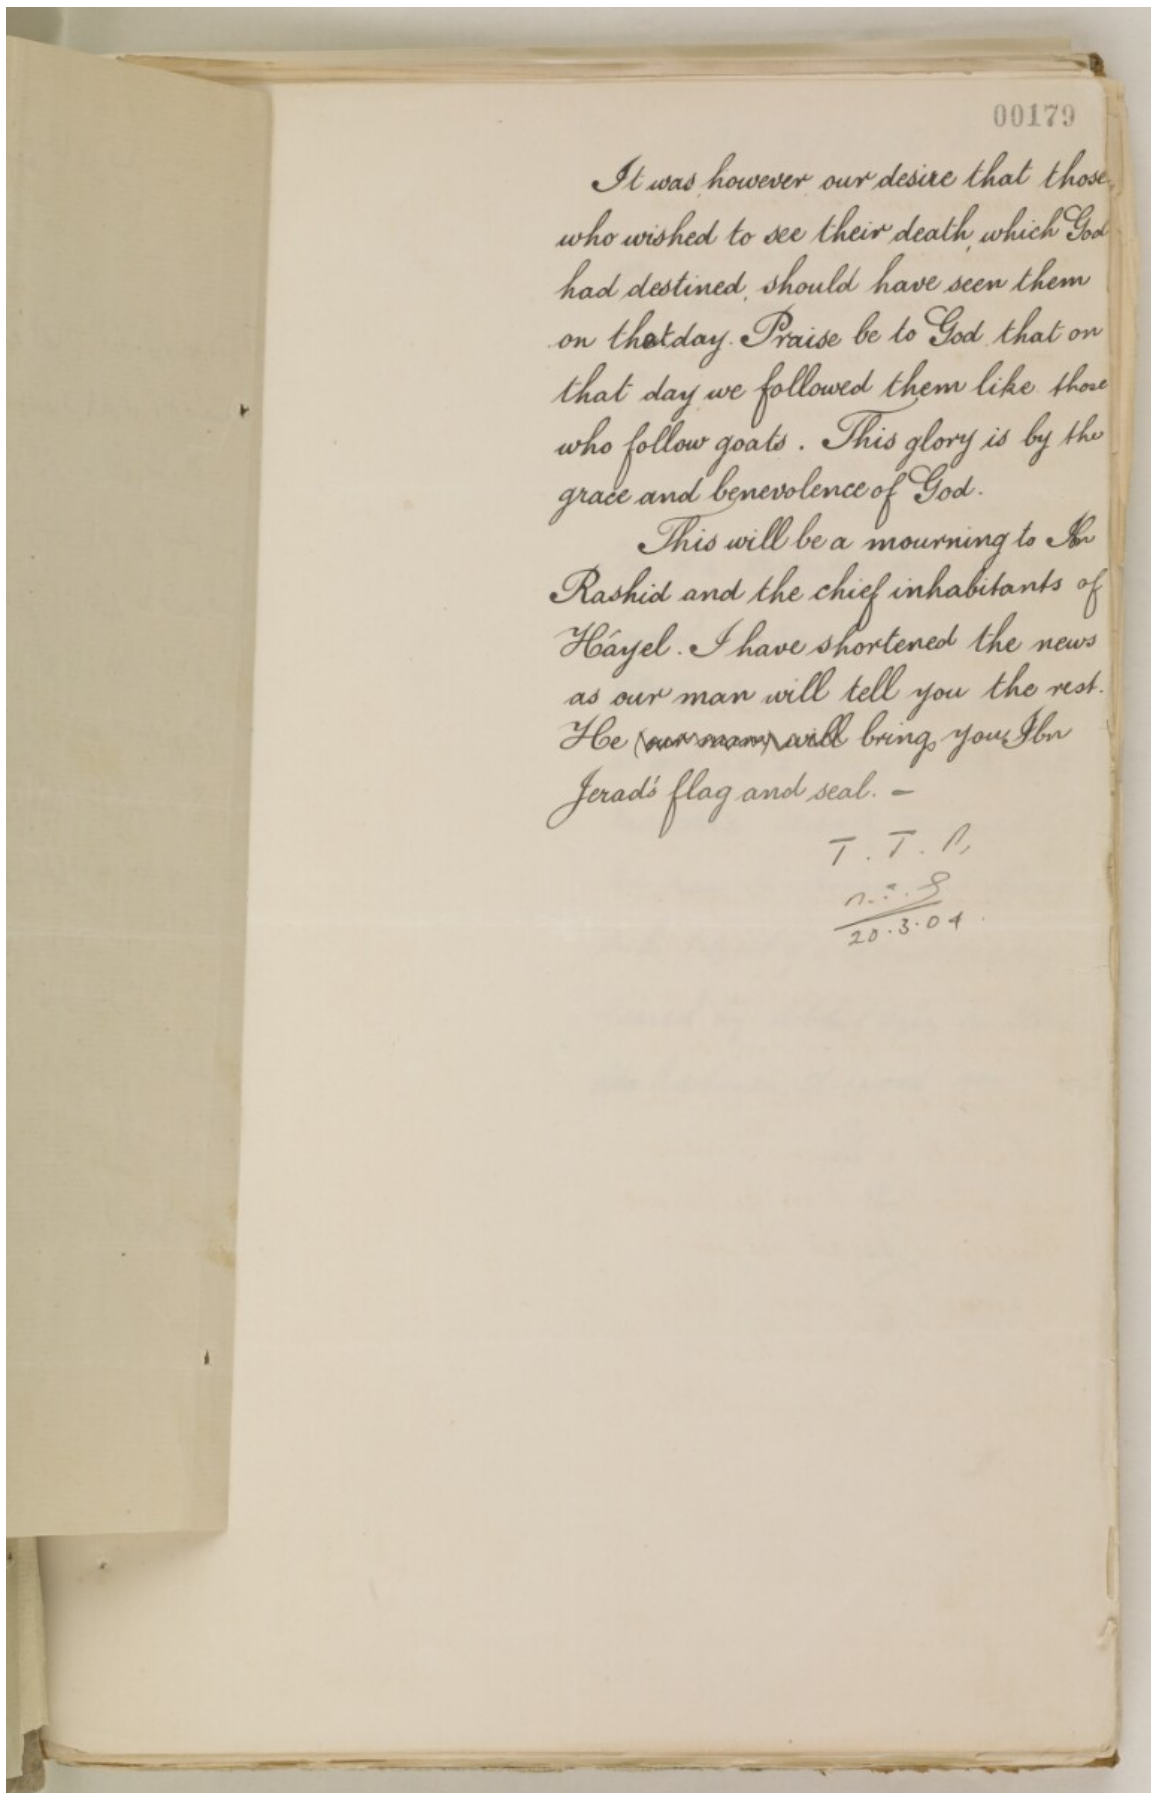 00179
It was, however, our desire that those,
who wished to see their death, which God
had destined, should have seen them
on that day. Praise be to God that on
that day we followed them like those
who follow goats. This glory is by the
grace and benevolence of God.
This will be a mourning to Ibn
Rashid and the chief inhabitants of
Háyel. I have shortened the news
as our man will tell you the rest.
He (our man) will bring you Ibn
Jerad's flag and seal. -
T. T.
20.3.04.